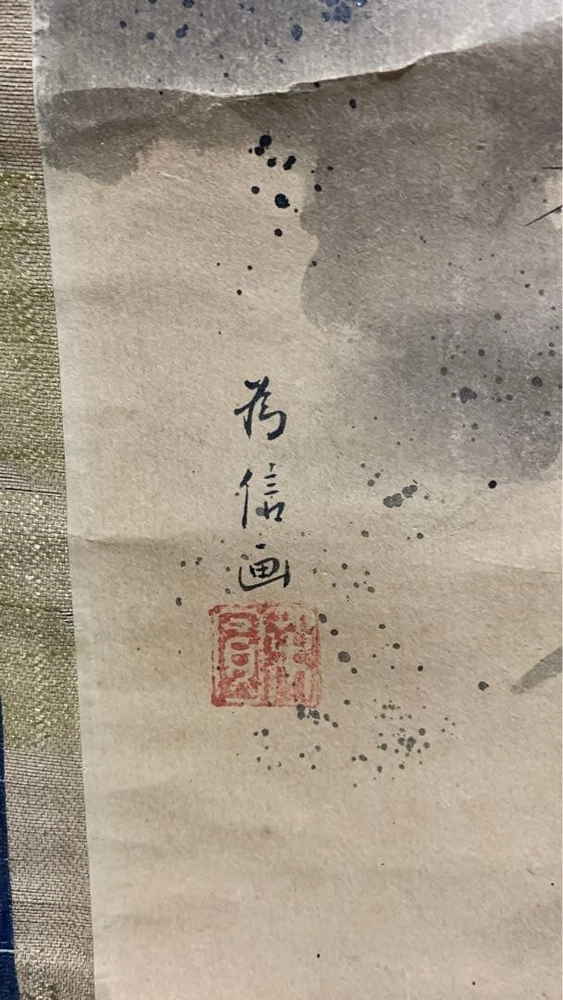 為信画